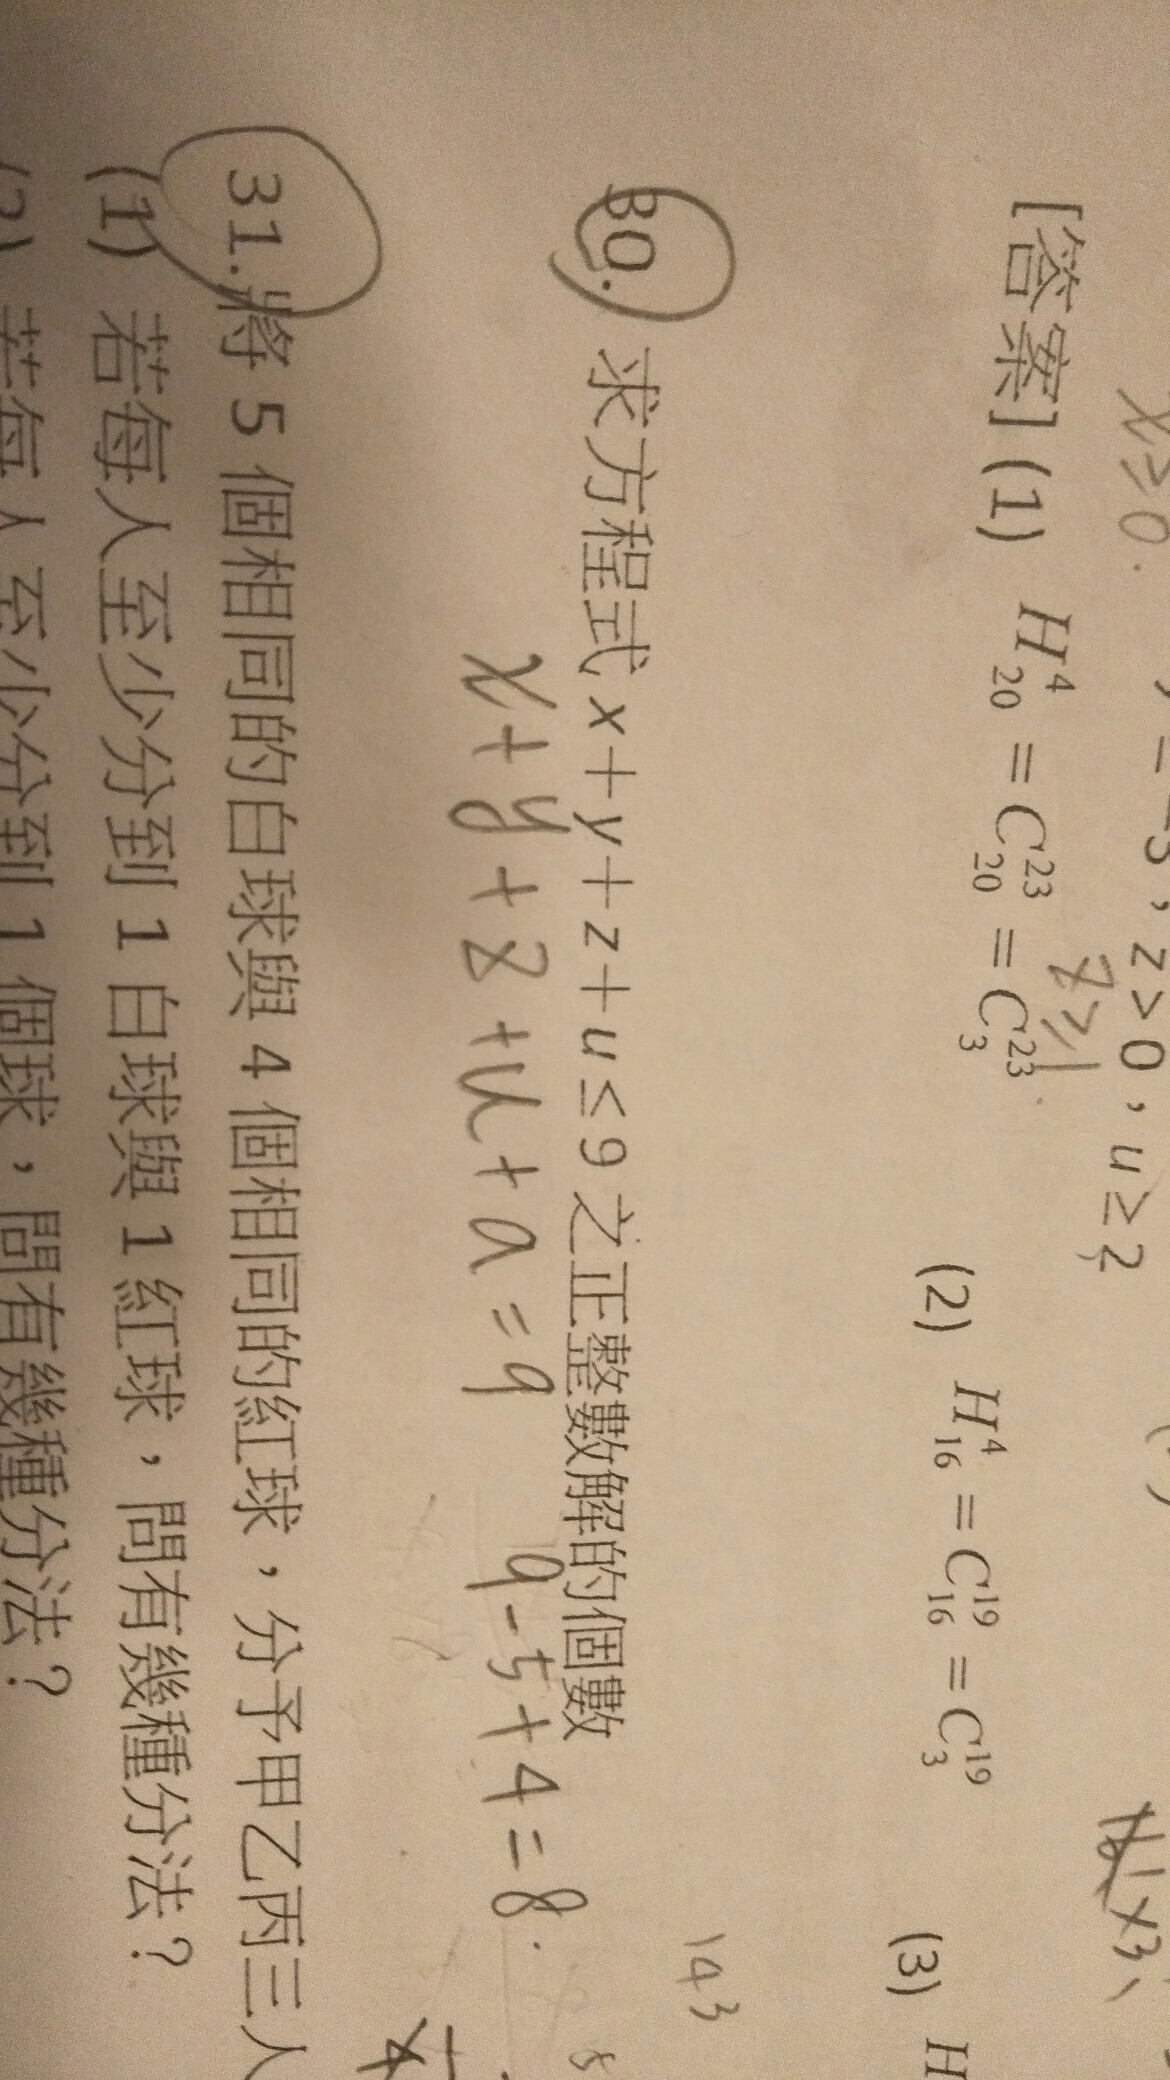 x≥0.
z>0，u≥2
z≥1
[答案] (1) H^4_20 = C^23_20 = C^23_3 (2) H^4_16 = C^19_16 = C^19_3 (3) H
143
30. 求方程式 x+y+z+u≤9 之正整數解的個數
x+y+z+u+a=9 9-5+4=8.
31.將 5 個相同的白球與 4 個相同的紅球，分予甲乙丙三人
(1) 若每人至少分到 1 白球與 1 紅球，問有幾種分法？
(2) 若每人至少分到 1 個球，問有幾種分法？